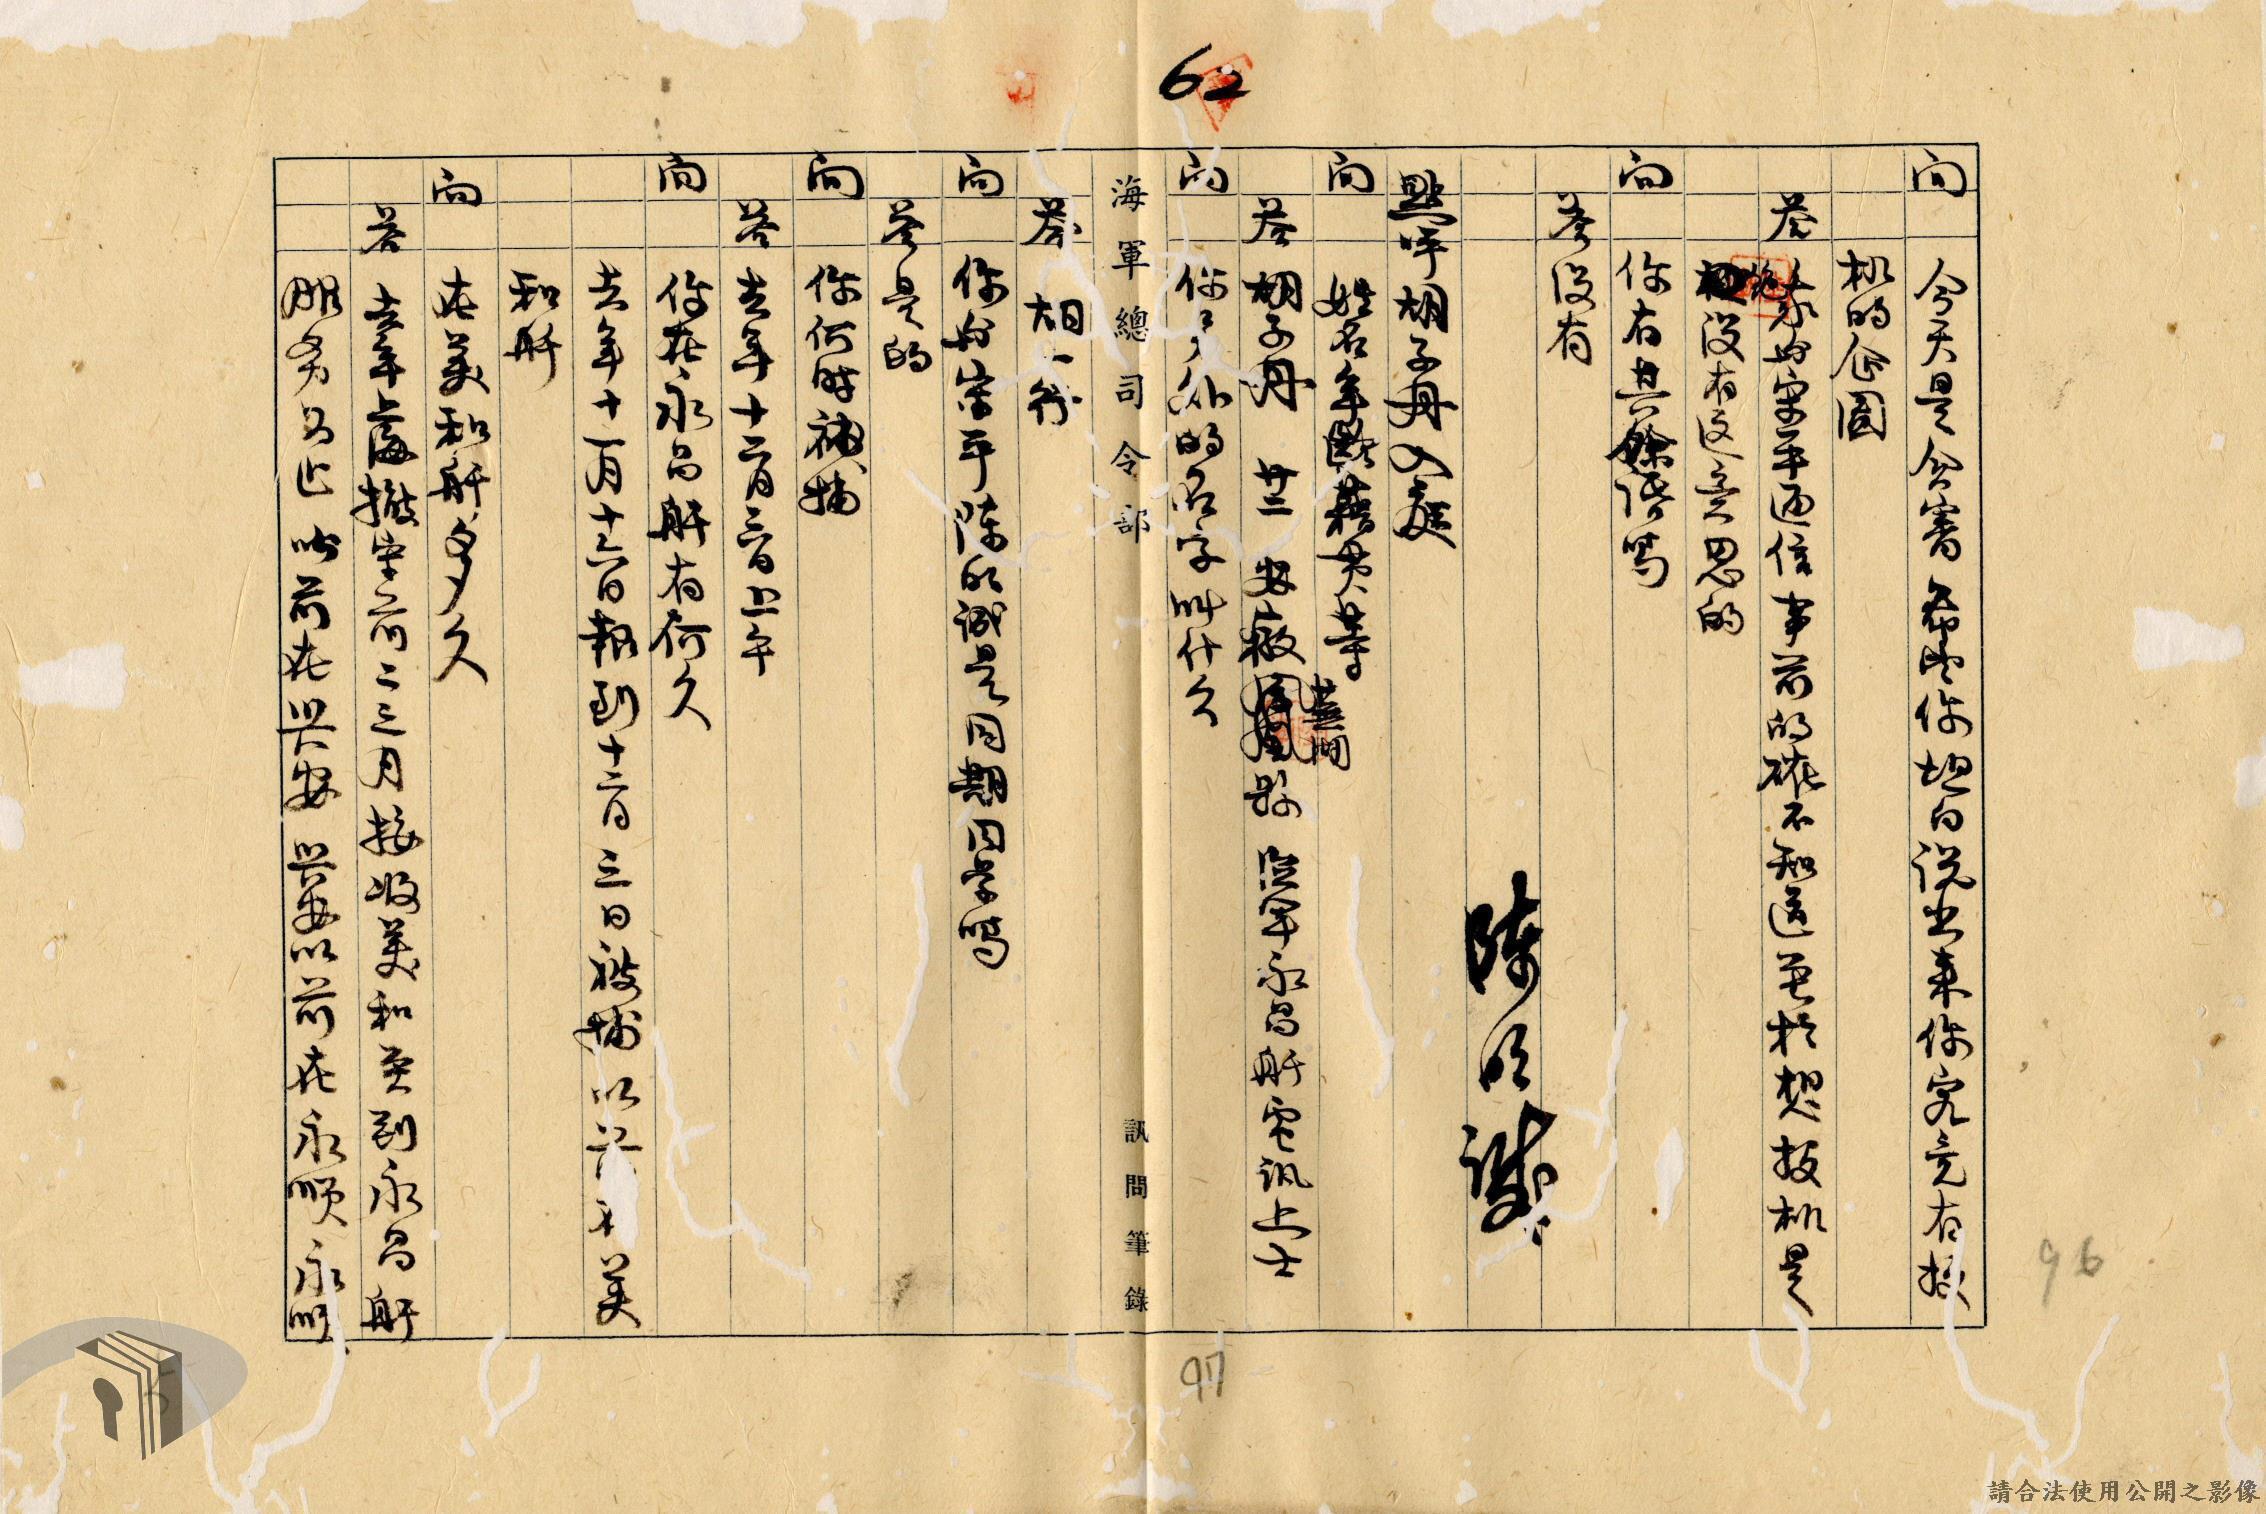 62
問 今天是會審希望你坦白說出來你究竟有投
机的企圖
答 我与宋平通信事前的確不知道至於想投机是
絕没有這意思的
問 你有其餘話嗎
答 没有
陳明誠
點呼胡子丹入庭
問 姓名年齡藉貫等
答 胡子丹 廿二 安徽蕪湖縣 海軍永昌艦電訊上士
問 你另外的名字叫什么
海軍總司令部
訊問筆錄
答 胡一行
問 你与宋平陳明誠是同期同学嗎
答 是的
問 你何時被捕
答 去年十二月三日上午
問 你在永昌艦有何久
去年十一月十六日報到十二月三日被捕以前在美
和艦
問 在美和艦多久
答 去年上海撤守前二三月接收美和
到永昌艦
服务为止以前在兴安 兴安以前在永順 永明
96
97
請合法使用公開之影像